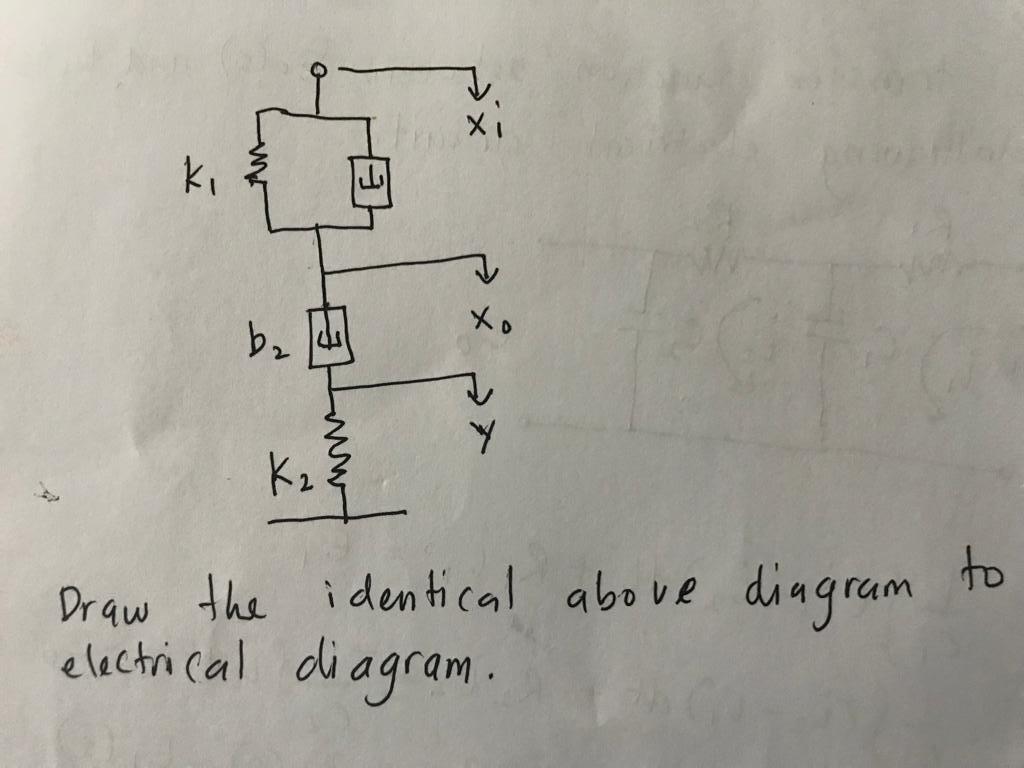 xi
k1
xo
b2
y
K2
Draw the identical above diagram to
electrical diagram.